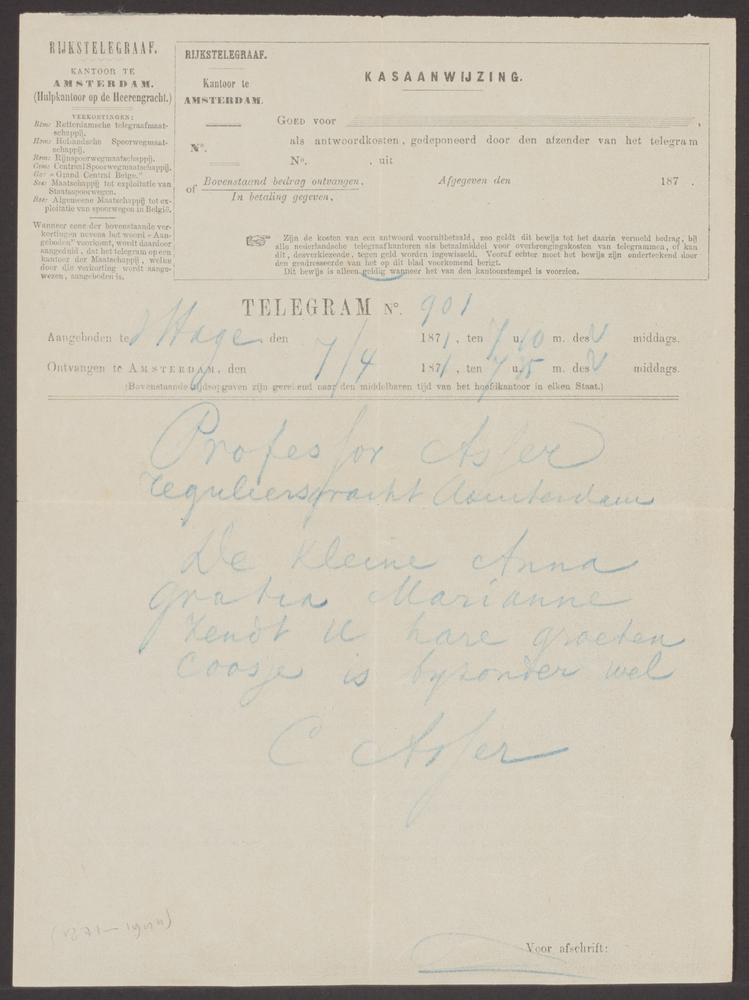 RIJKSTELEGRAAF.
KANTOOR TE
AMSTERDAM.
(Hulpkantoor op de Heerengracht.)
VERKORTINGEN:
Rtm: Rotterdamsche telegraafmaat-
schappij.
Hsm: Hollandsche Spoorwegmaat-
schappij.
Rsm: Rijnspoorwegmaatschappij.
Csm: Centraal Spoorwegmaatschappij.
Gc: "Grand Central Belge."
Sse: Maatschappij tot exploitatie van
Staatsspoorwegen.
Bse: Algemeene Maatschappij tot ex-
ploitatie van spoorwegen in België.
Wanneer eene der bovenstaande ver-
kortingen nevens het woord "Aan-
geboden" voorkomt, wordt daardoor
aangeduid, dat het telegram op een
kantoor der Maatschappij, welke
door die verkorting wordt aange-
wezen, aangeboden is.
RIJKSTELEGRAAF.
Kantoor te
AMSTERDAM.
KASAANWIJZING.
GOED voor
als antwoordkosten, gedeponeerd door den afzender van het telegram
N°.
N°. , uit
of Bovenstaand bedrag ontvangen,
In betaling gegeven,
Afgegeven den 187 .
Zijn de kosten van een antwoord vooruitbetaald, zoo geldt dit bewijs tot het daarin vermeld bedrag, bij
alle nederlandsche telegraafkantoren als betaalmiddel voor overbrengingskosten van telegrammen, of kan
dit, desverkiezende, tegen geld worden ingewisseld. Vooraf echter moet het bewijs zijn onderteekend door
den geadresseerde van het op dit blad voorkomend berigt.
Dit bewijs is alleen geldig wanneer het van den kantoorstempel is voorzien.
TELEGRAM N°. 901
Aangeboden te s'Hage den 7/4 1871, ten 7 u. 10 m. des V middags.
Ontvangen te AMSTERDAM, den 7/4 1871, ten 7 u. 15 m. des V middags.
(Bovenstaande tijdsopgaven zijn gerekend naar den middelbaren tijd van het hoofdkantoor in elken Staat.)
Professor Asser
Reguliersgracht Amsterdam
De kleine Anna
Gratia Marianne
Zendt U hare groeten
Coosje is byzonder wel
C Asser
Voor afschrift: